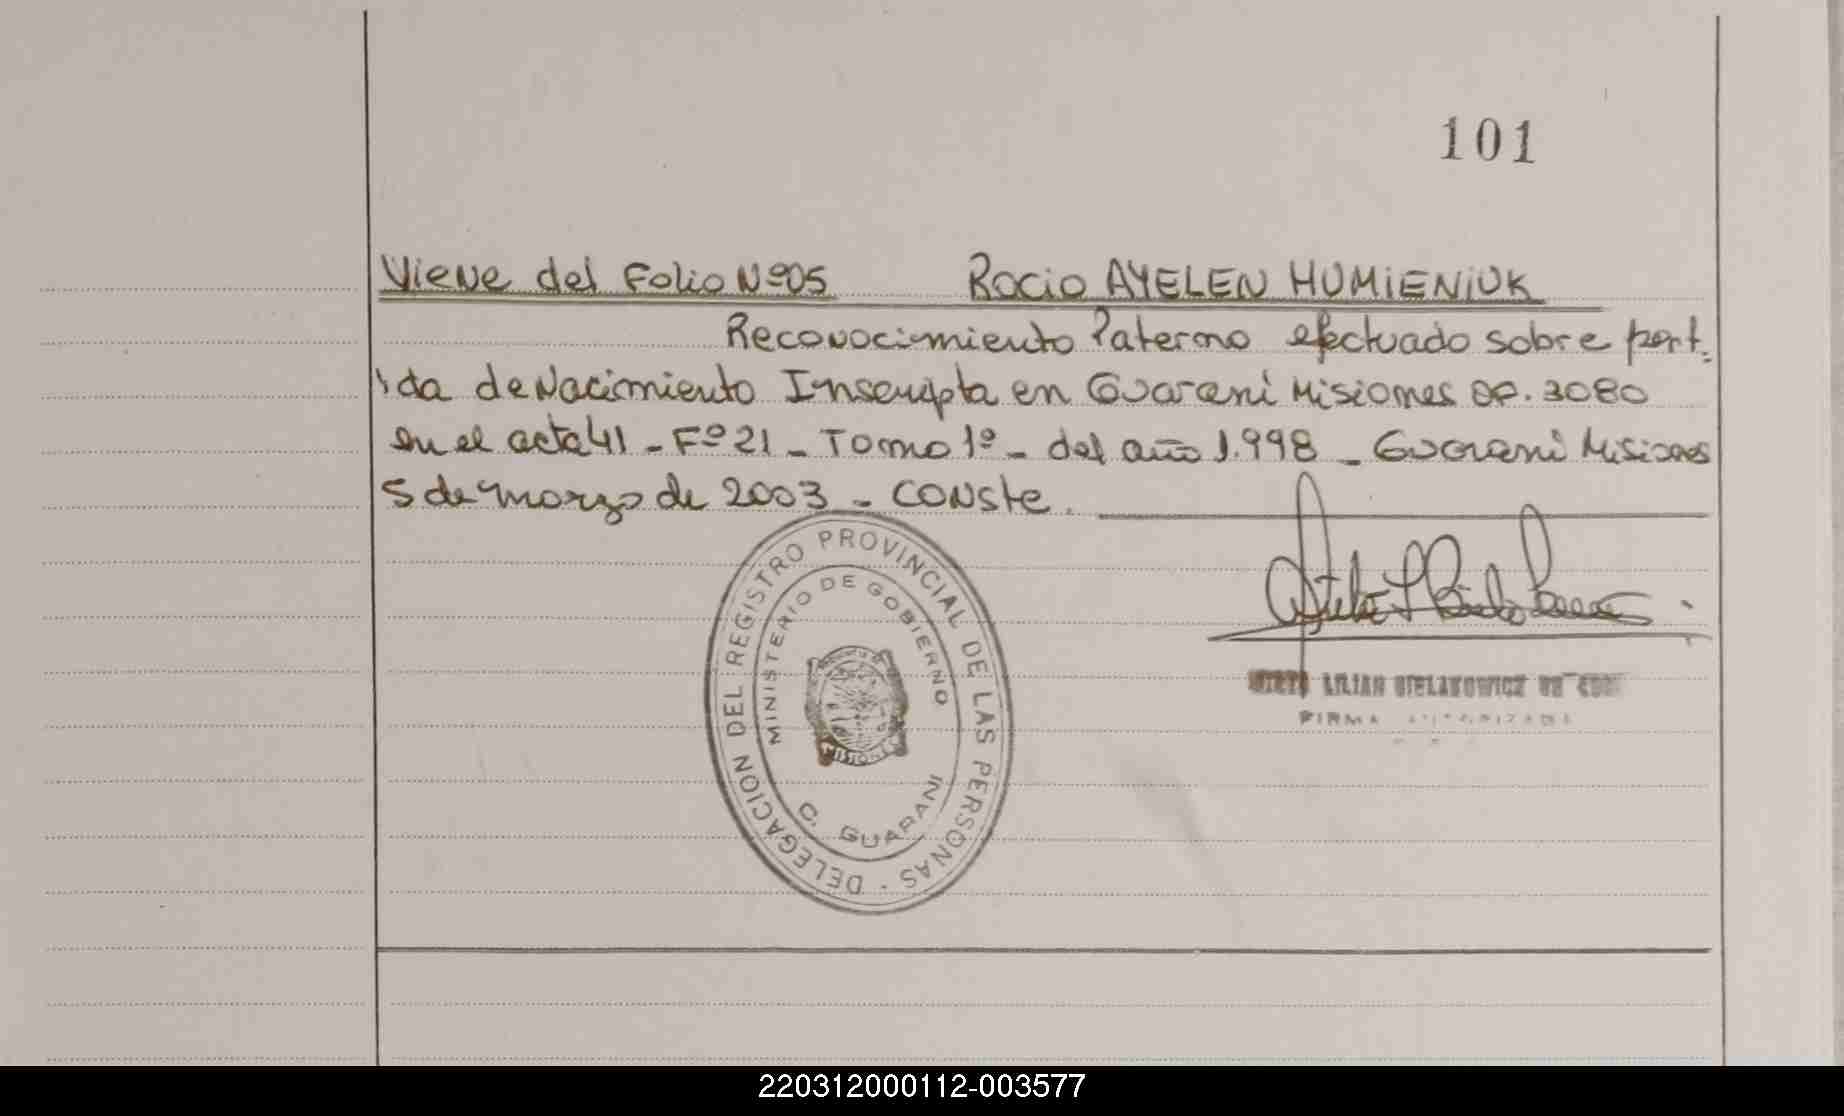 101
Viene del Folio Nº05 Rocio AYELEN HUMiENiUK
Reconocimiento Paterno efectuado sobre part.
ida de Nacimiento Inscripta en Guarani Misiones OP. 3080
en el acta 41 - Fº 21 - Tomo 1º - del año 1.998 - Guarani Misiones
5 de marzo de 2003 - CONSte.
DELEGACION DEL REGISTRO PROVINCIAL DE LAS PERSONAS
MINISTERIO DE GOBIERNO
MISIONES
C. GUARANI
LILIAN BIELAKOWICZ DE
FIRMA AUTORIZADA
220312000112-003577